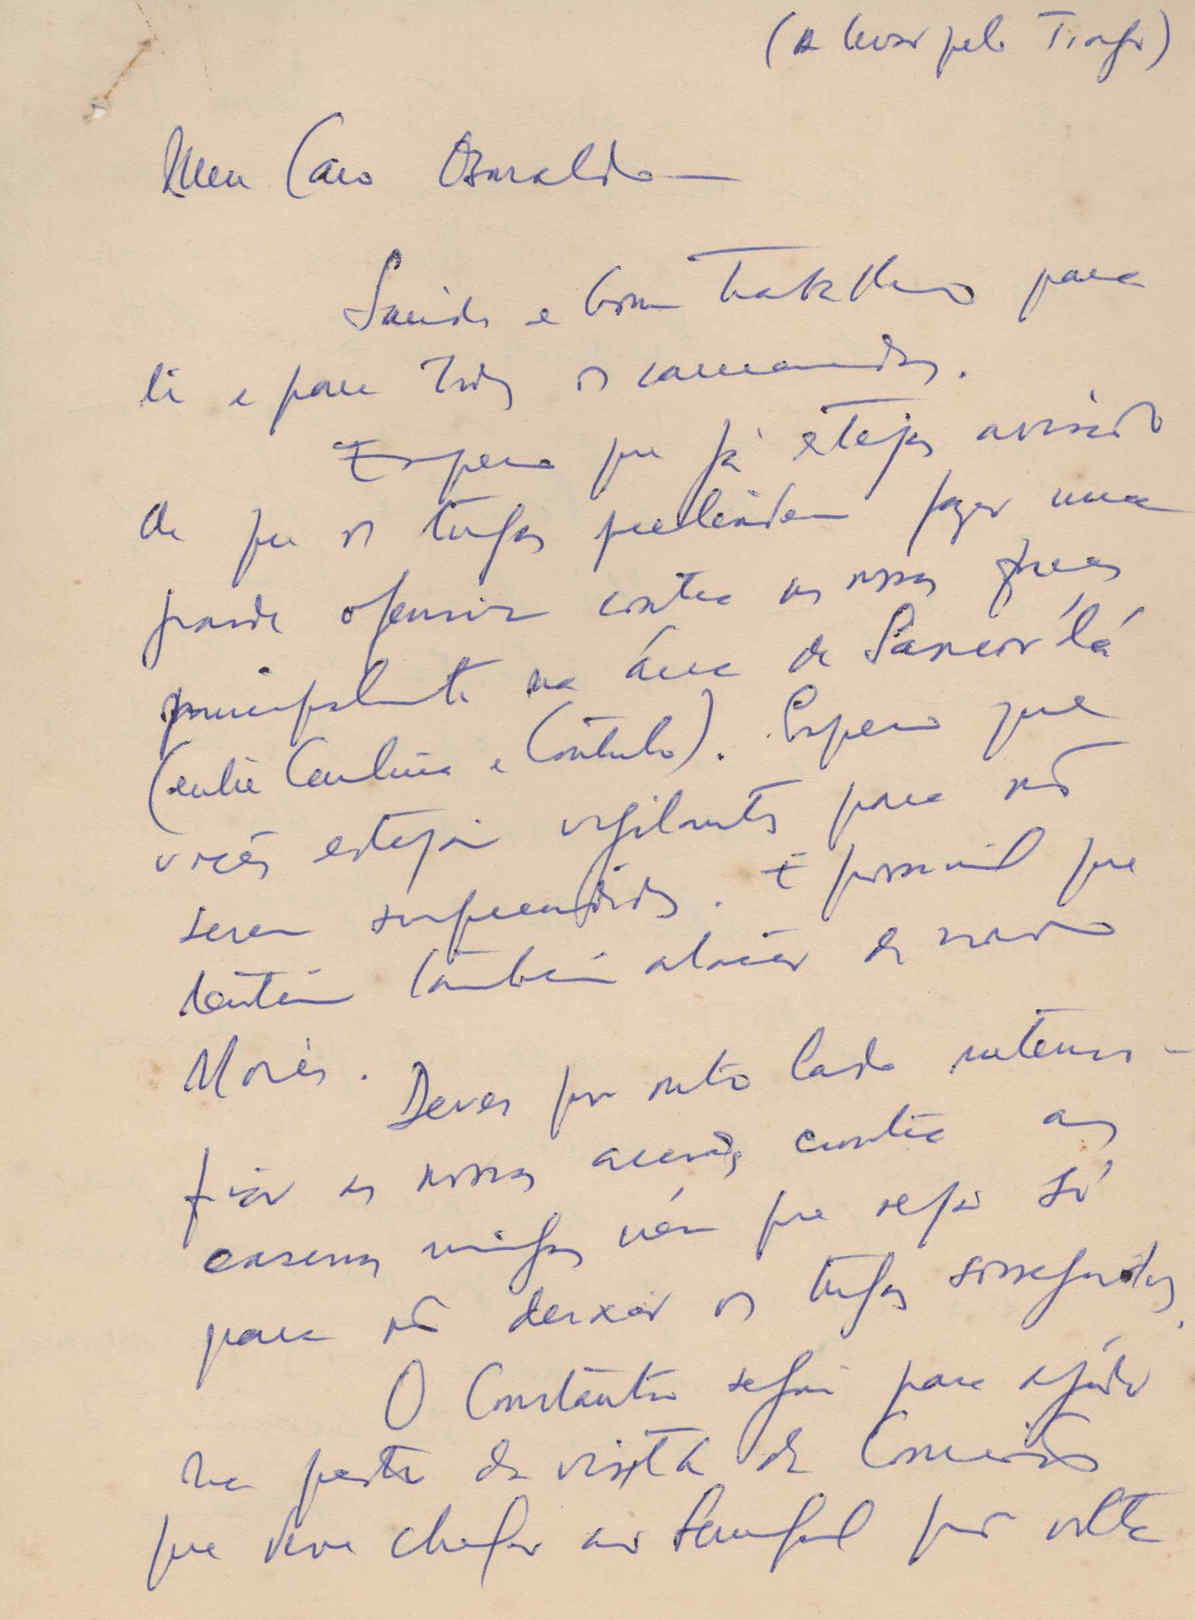 (A levar pelo Tiago)
Meu Caro Osvaldo —
Saúde e bom trabalho para
ti e para todos os camaradas.
Espero que já estejas avisado
de que os tugas pretendem fazer uma
grande ofensiva contra as nossas forças
principalmente na área de Sancorlá
(entre Cambesse e). Espero que
vocês estejam vigilantes para não
serem surpreendidos. É possível que
tentem também atacar de novo
Morés. Deves por outro lado intensi-
ficar as nossas acções contra as
casernas inimigas nem que seja só
para não deixar os tugas sossegados.
O Constantino seguiu para ajudar
na parte da visita da Comissão
que deve chegar ao Senegal por volta